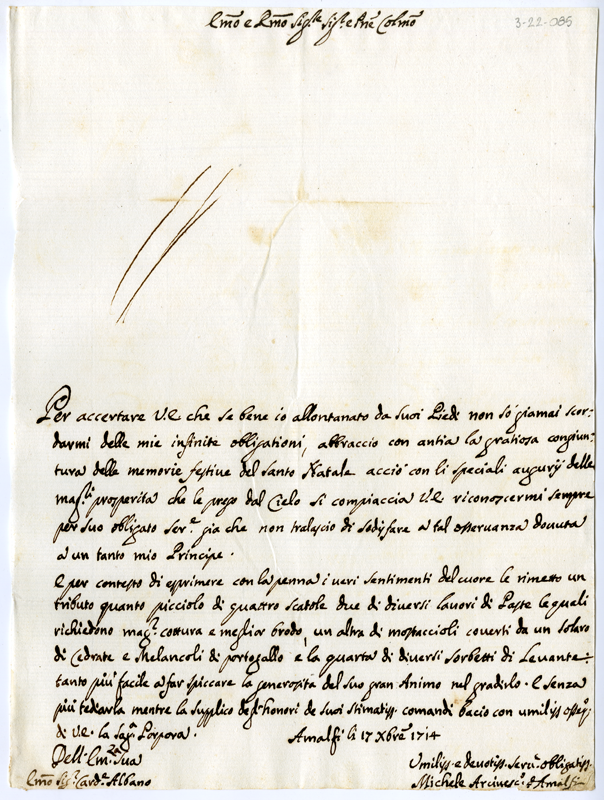 Em̃o e Rm̃o Sig.re Sig.r e Prñe Colmõ
3-22-085
Per accertare V.E. che se bene io allontanato da suoi Piedi non sò giamai scor-
darmi delle mie infinite obligationi, abbraccio con antia la gratiosa congiun-
tura delle memorie festive del santo Natale acciò con li speciali augurÿ delle
mag.ri prosperità che le prego dal Cielo si compiaccia V.E. riconoscermi sempre
per suo obligato ser.re già che non tralascio di sodisfare a tal osservanza douuta
a un tanto mio Principe.
E per contesto di esprimere con la penna i ueri sentimenti del cuore le rimetto un
tributo quanto picciolo di quattro scatole due di diversi lauori di Paste le quali
richiedono mag.r cottura e meglior brodo, un altra di mostaccioli couerti da un solaro
di Cedrate e Melancoli di portogallo e la quarta di diversi sorbetti di Levante
tanto più facile a far spiccare la generosità del suo gran Animo nel gradirlo. E senza
più tediarla mentre la supplico degl'honori de suoi stimatiss. comandi bacio con umiliss. osseq:
di V.E. la sag.ra Porpora. Amalfi li 17 Xbre 1714
Dell'Em.za Sua
Em̃o Sig.r Card.le Albano
Umiliss. e devotiss. seru.re obligatiss.
Michele Arciuesc.o d'Amalfi